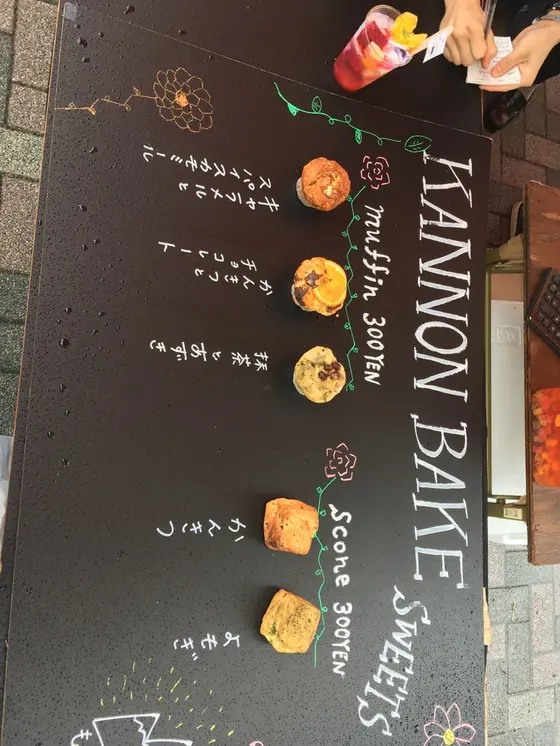 KANNON BAKE SWEETS
muffin 300YEN
キャラメルと
スパイスカモミール
かんきつと
チョコレート
抹茶とあずき
Scone 300YEN
かんきつ
よもぎ